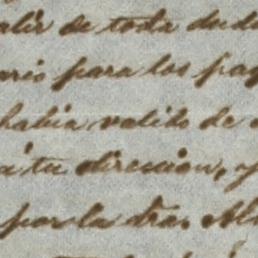 alir de toda duda
ario para los pag
habia valido de
a tu direccion, y
por la dra. Al